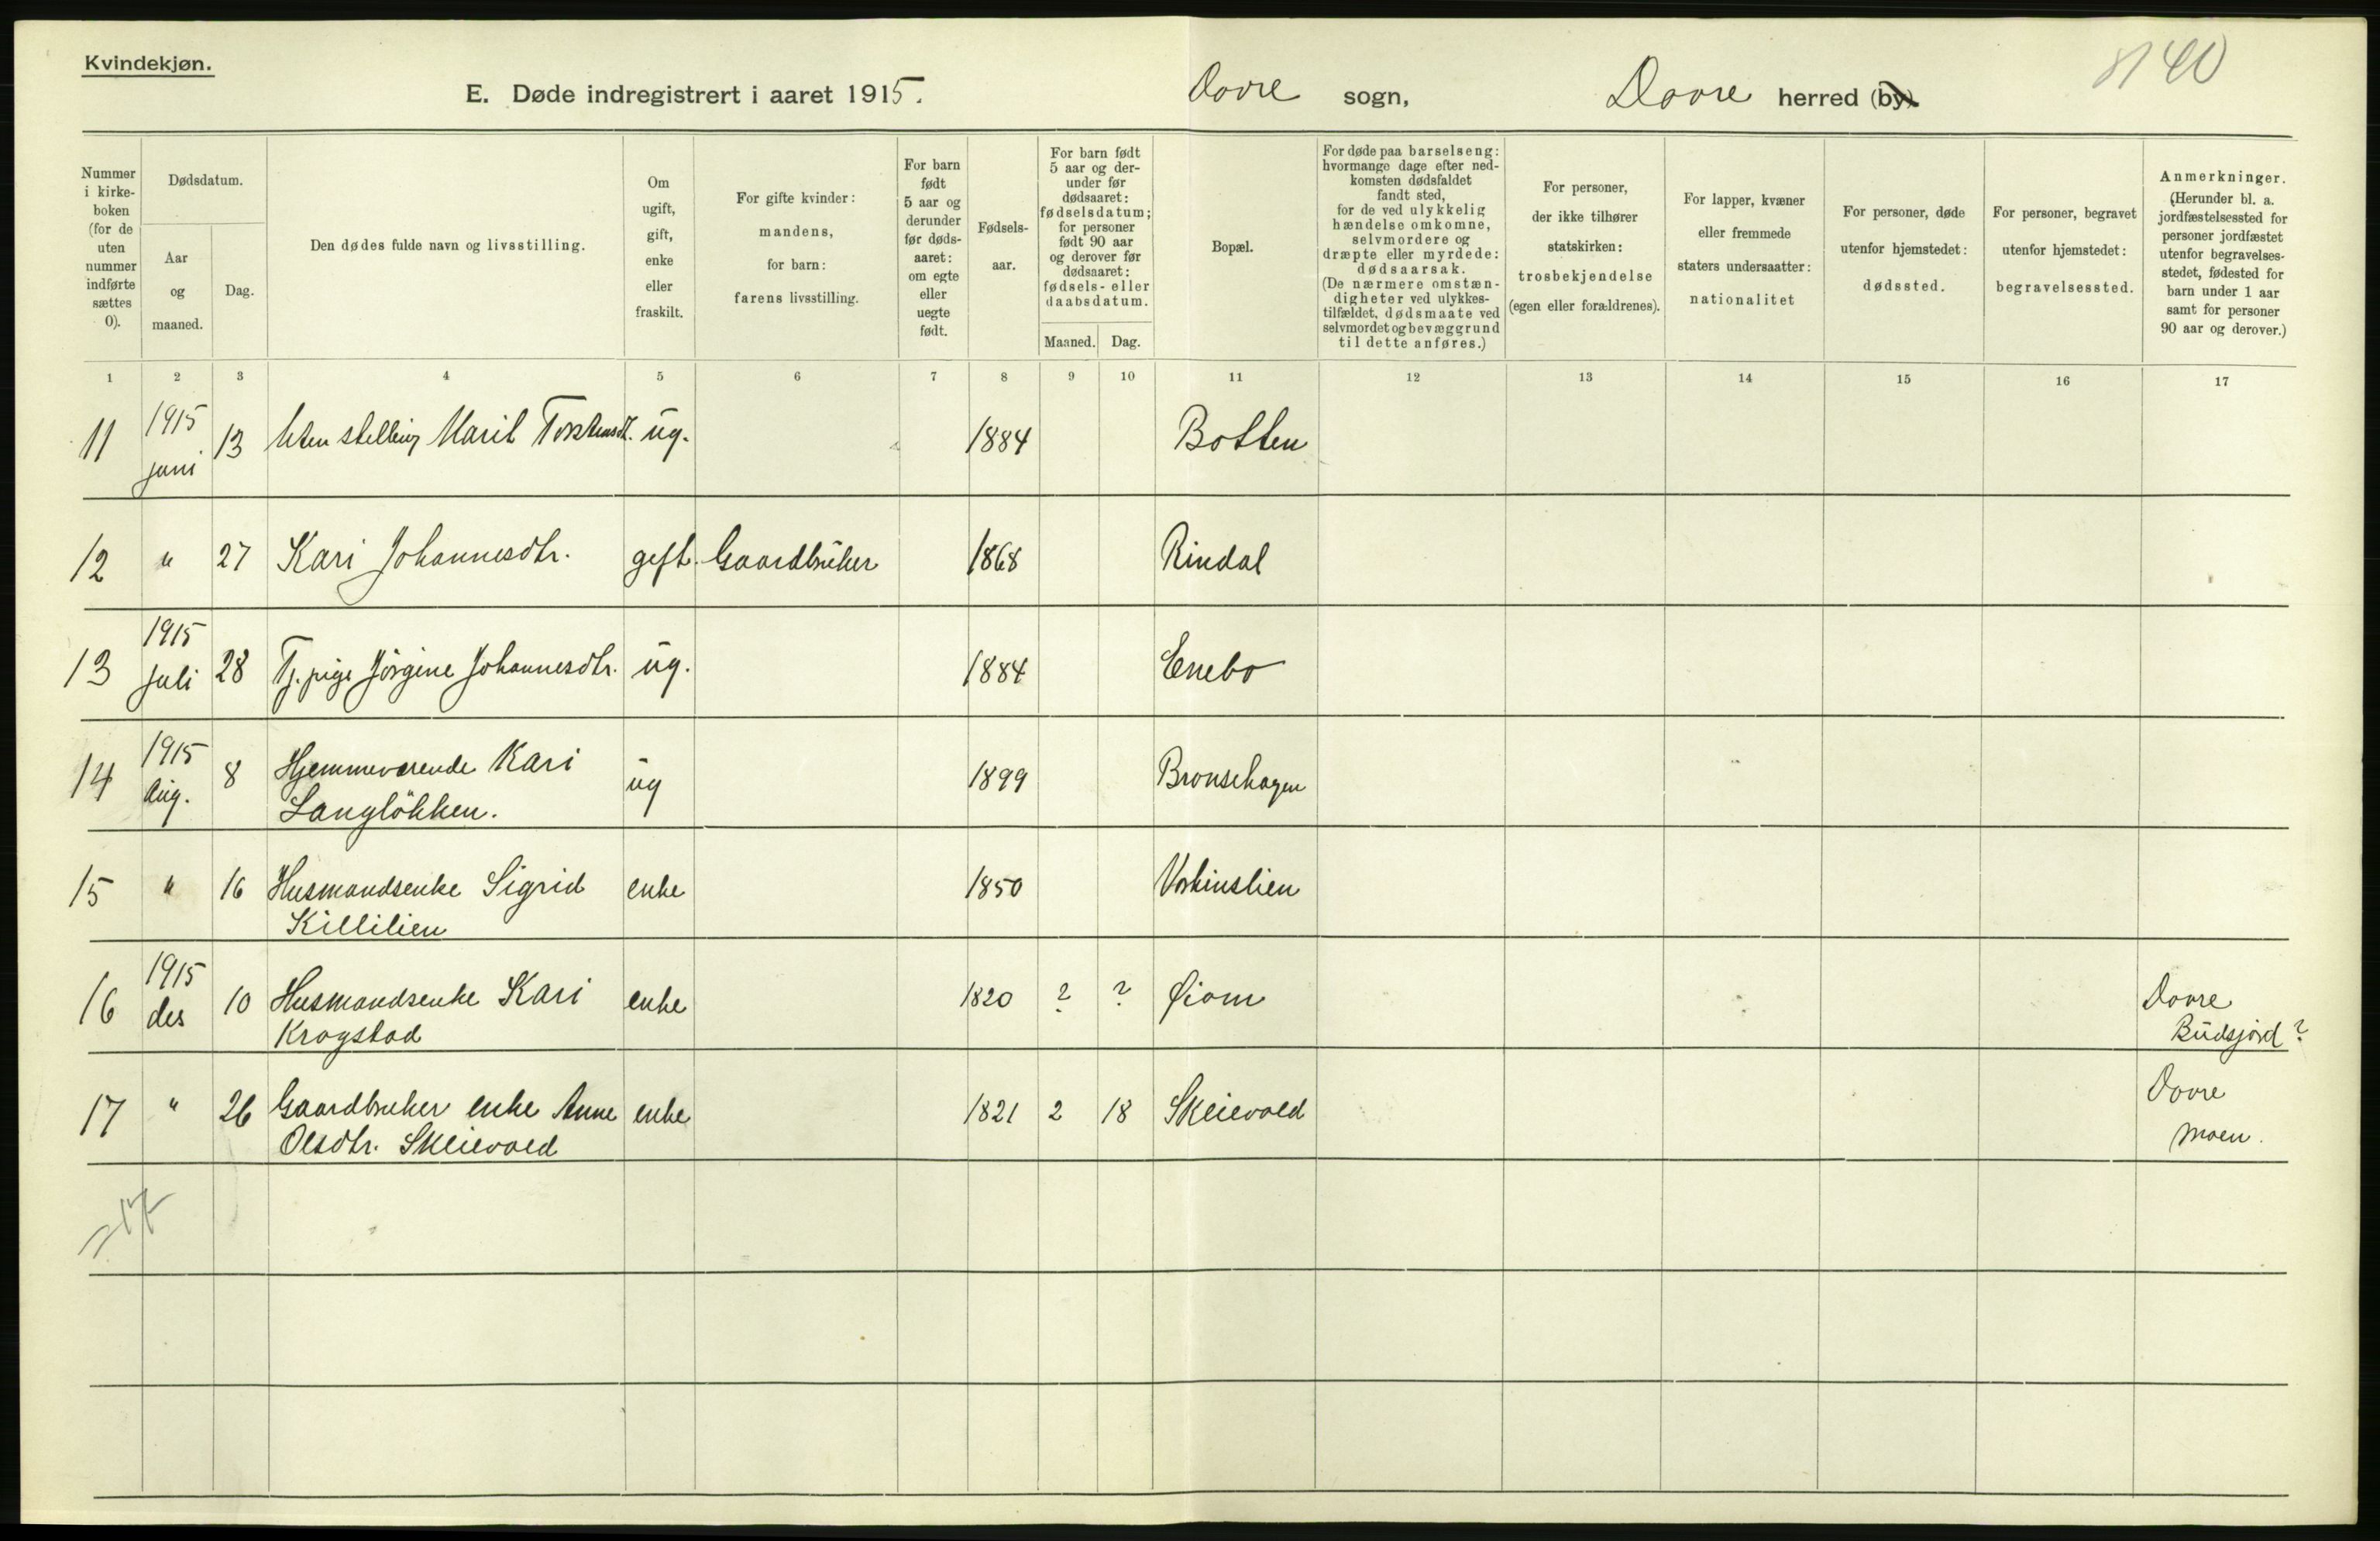 Kvindekjøn.
8/40
E. Døde indregistrert i aaret 1915. Dovre sogn, Dovre herred (by).
Nummer i kirke-boken (for de uten nummer indførte sættes 0).
Dødsdatum.
Aar og maaned.
Dag.
Den dødes fulde navn og livsstilling.
Om ugift, gift, enke eller fraskilt.
For gifte kvinder: mandens, for barn: farens livsstilling.
For barn født 5 aar og derunder før døds-aaret: om egte eller uegte født.
Fødsels-aar.
For barn født 5 aar og der-under før dødsaaret: fødselsdatum; for personer født 90 aar og derover før dødsaaret: fødsels- eller daabsdatum.
Maaned. Dag.
Bopæl.
For døde paa barselseng: hvormange dage efter ned-komsten dødsfaldet fandt sted, for de ved ulykkelig hændelse omkomne, selvmordere og dræpte eller myrdede: dødsaarsak. (De nærmere omstæn-digheter ved ulykkes-tilfældet, dødsmaate ved selvmordet og bevæggrund til dette anføres.)
For personer, der ikke tilhører statskirken: trosbekjendelse (egen eller forældrenes).
For lapper, kvæner eller fremmede staters undersaatter: nationalitet
For personer, døde utenfor hjemstedet: dødssted.
For personer, begravet utenfor hjemstedet: begravelsessted.
Anmerkninger. (Herunder bl. a. jordfæstelsessted for personer jordfæstet utenfor begravelses-stedet, fødested for barn under 1 aar samt for personer 90 aar og derover.)
1 2 3 4 5 6 7 8 9 10 11 12 13 14 15 16 17
11 1915 juni 13 Uten stilling Marit Torstensdt. ug. 1884 Botten
12 " 27 Kari Johannesdtr. gift. Gaardbruker 1868 Rindal
13 1915 juli 28 Tj. pige Jörgine Johannesdtr. ug. 1884 Enebo
14 1915 Aug. 8 Hjemmeværende Kari ug 1899 Bronsehagen
Langlökken.
15 " 16 Husmandsenke Sigrid enke 1850 Vorkinslien
Killilien
16 1915 des 10 Husmandsenke Kari enke 1820 ? ? Øiom Dovre
Krogstad Budsjord ?
17 " 26 Gaardbruker enke Anne enke 1821 2 18 Skeievold Dovre
Olsdtr. Skeievold Moen.
17